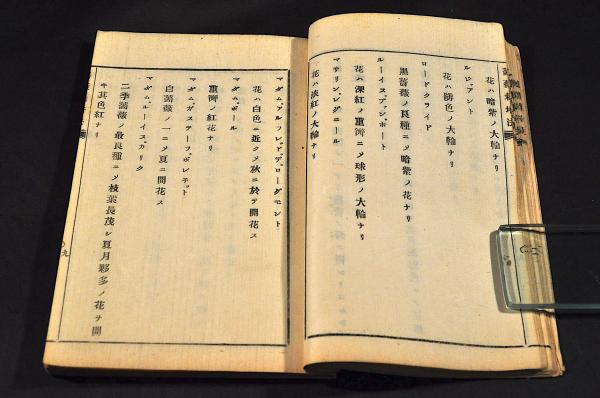 花ハ暗紫ノ大輪ナリ
ルシアント
花ハ緋色ノ大輪ナリ
ロードクライド
黒薔薇ノ良種ニメ暗紫ノ花ナリ
ルーイスフアンホート
花ハ深紅ノ重瓣ニメ球形ノ大輪ナリ
マテリン、レグニール
花ハ淡紅ノ大輪ナリ
マダム、アルフレッドデ、ローグモント
花ハ白色ニ近クメ秋ニ於テ開花ス
マダム、ボール
重瓣ノ紅花ナリ
マダム、ガステーフボレテット
白薔薇ノ一ニメ夏ニ開花ス
マダム、ルーイス、カリク
二季薔薇ノ最良種ニメ枝葉長茂シ夏月夥多ノ花ヲ開
キ其色紅ナリ